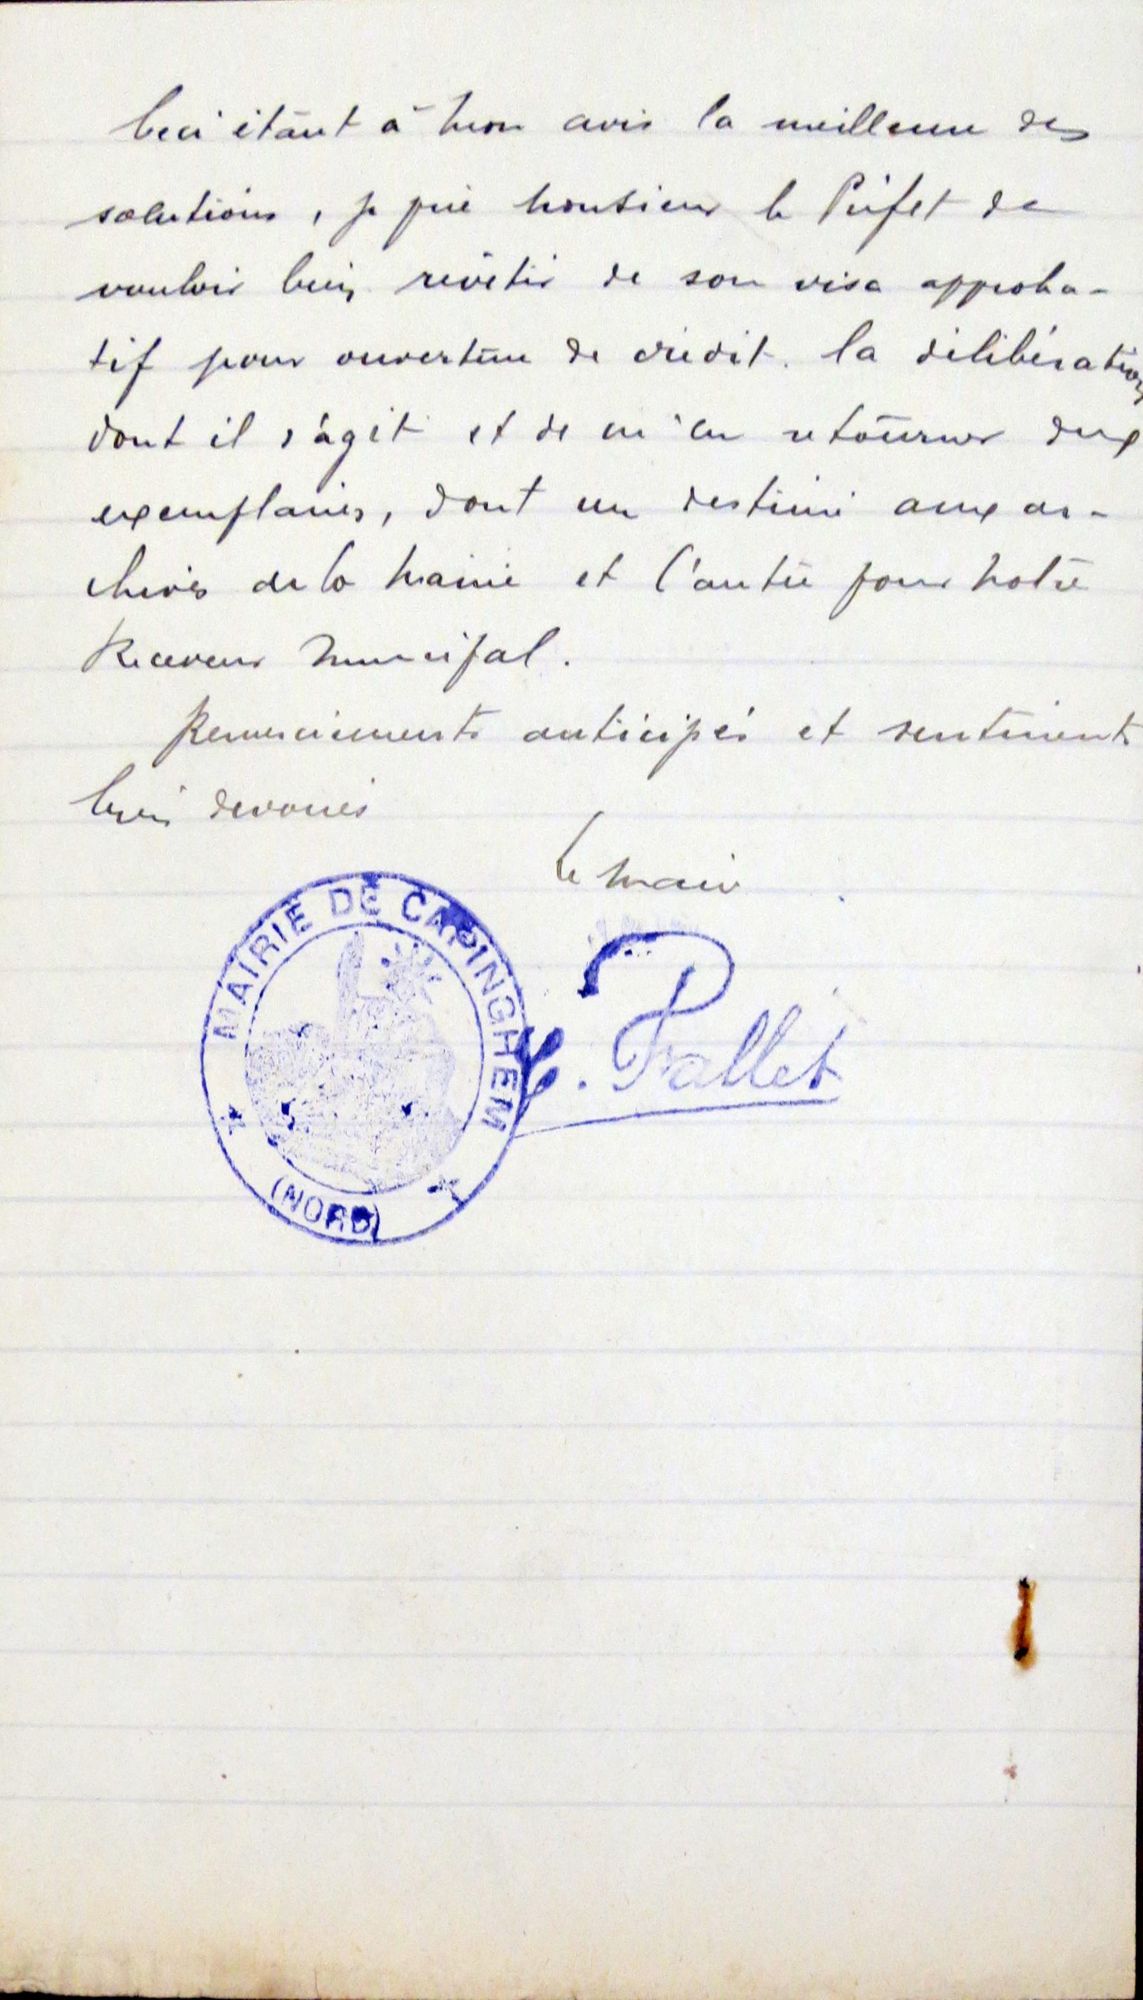 Ceci étant à mon avis la meilleure des
solutions, je prie Monsieur le Préfet de
vouloir bien revêtir de son visa approba-
tif pour ouverture de crédit. la délibération
dont il s'agit et de m'en retourner deux
exemplaires, dont un destiné aux ar-
chives de la Mairie et l'autre pour notre
Receveur Municipal.
Remerciements anticipés et sentiments
bien dévoués
Le Maire
MAIRIE DE CAPINGHEM
(NORD)